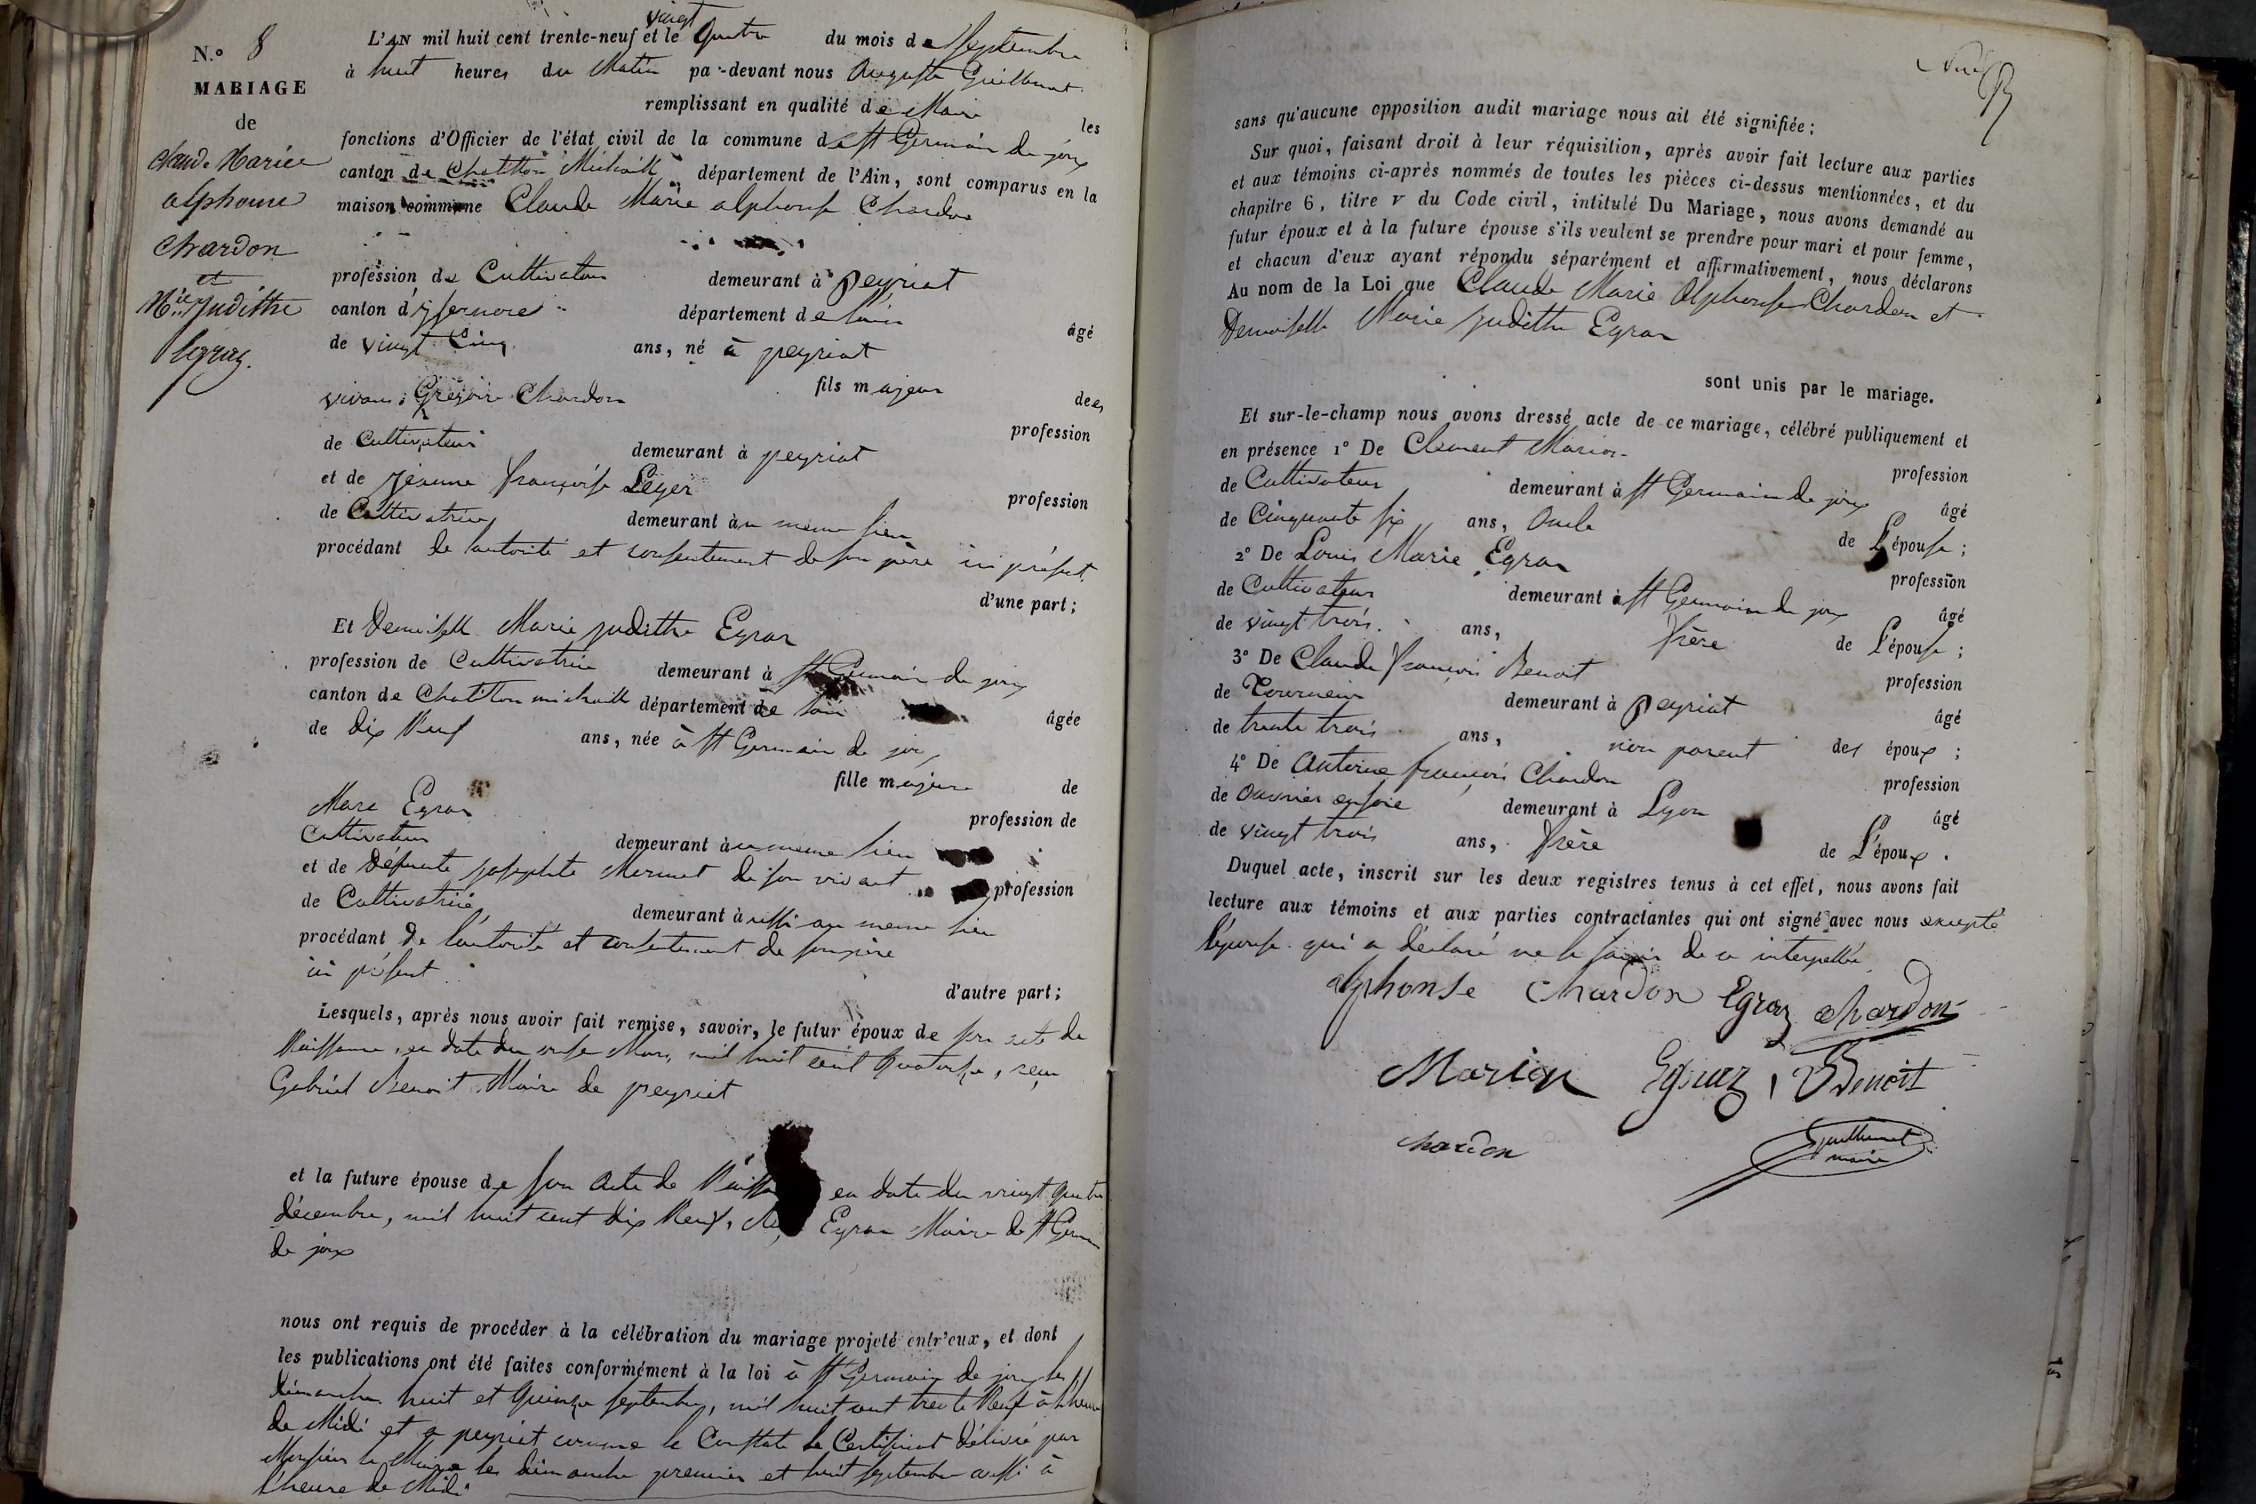 N.º 8
MARIAGE
de
Claude Marie
alphonse
Chardon
et
M.ie Judithe
Egraz.
L'AN mil huit cent trente-neuf et le vingt quatre du mois de Septembre
à huit heures du Matin par-devant nous Auguste Guillermet
remplissant en qualité de Maire les
fonctions d'Officier de l'état civil de la commune de St Germain de joux
canton de Chatillon Michaille, département de l'Ain, sont comparus en la
maison commune Claude Marie alphonse Chardon
profession de Cultivateur demeurant à peyriat
canton d'izernore département de l'ain âgé
de vingt Cinq ans, né à peyriat
fils majeur des
vivans Grégoire Chardon profession
de Cultivateur demeurant à peyriat
et de jeanne françoise Leger profession
de Cultivatrice demeurant au meme lieu
procédant de l'autorité et consentement de son père ici présent
d'une part ;
Et Demoiselle Marie judithe Egraz
profession de Cultivatrice demeurant à St Germain de joux
canton de Chatillon michaille département de l'ain âgée
de dix Neuf ans, née à St Germain de joux
fille majeure de
Marc Egraz profession de
Cultivateur demeurant au meme lieu
et de défunte josephte Mermet de son vivant profession
de Cultivatrice demeurant aussi au meme lieu
procédant de l'autorité et consentement de son père
ici présent
d'autre part ;
Lesquels, après nous avoir fait remise, savoir, le futur époux de son acte de
Naissance, en date du onze Mars, mil huit cent quatorze, reçu
Gabriel Benoit Maire de peyriat
et la future épouse de son acte de en date du vingt quatre
décembre, mil huit cent dix Neuf, Egraz Maire de St Germain
de joux
nous ont requis de procéder à la célébration du mariage projeté entr'eux, et dont
les publications ont été faites conformément à la loi à St Germain de joux les
dimanches huit et quinze septembre, mil huit cent trente Neuf à l'heure
de Midi et a peyriat comme le Constate le Certificat délivré par
Monsieur le Maire les dimanche premier et huit septembre aussi à
l'heure de Midi
sans qu'aucune opposition audit mariage nous ait été signifiée ;
Sur quoi, faisant droit à leur réquisition, après avoir fait lecture aux parties
et aux témoins ci-après nommés de toutes les pièces ci-dessus mentionnées, et du
chapitre 6, titre v du Code civil, intitulé Du Mariage, nous avons demandé au
futur époux et à la future épouse s'ils veulent se prendre pour mari et pour femme,
et chacun d'eux ayant répondu séparément et affirmativement, nous déclarons
Au nom de la Loi que Claude Marie Alphonse Chardon et
Demoiselle Marie judithe Egraz
sont unis par le mariage.
Et sur-le-champ nous avons dressé acte de ce mariage, célébré publiquement et
en présence 1º De Clement Marion profession
de Cultivateur demeurant à St Germain de joux âgé
de Cinquante six ans, Oncle de L'épouse ;
2º De Louis Marie Egraz profession
de Cultivateur demeurant à St Germain de joux âgé
de vingt trois ans, frère de L'épouse ;
3º De Claude françois Benoit profession
de Tourneur demeurant à peyriat âgé
de trente trois ans, non parent des époux ;
4º De Antoine françois Chardon profession
de Ouvrier en soie demeurant à Lyon âgé
de vingt trois ans, frère de L'époux.
Duquel acte, inscrit sur les deux registres tenus à cet effet, nous avons fait
lecture aux témoins et aux parties contractantes qui ont signé avec nous excepté
l'épouse qui a déclaré ne le savoir de ce interpellée
alphonse Chardon Egraz chardon
Marion Egraz Benoit
chardon Guillermet
maire